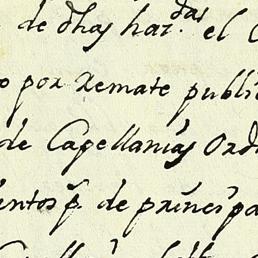 de dhas haz.das el
por Remate publi
de Capellanias Ord
entos p. de prinsipa